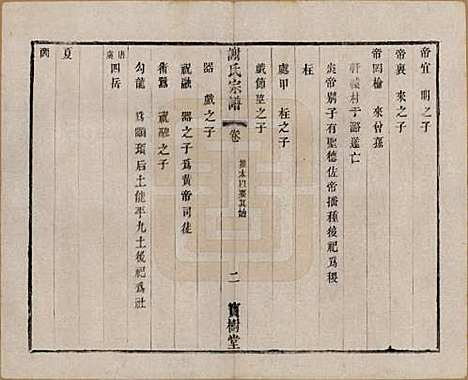 帝宜 明之子
帝襄 來之子
帝罔榆 來曾孫
軒轅村于潞遂亡
炎帝別子有聖德佐帝播種後祀爲稷
柱
處甲 柱之子
戲節莖之子
謝氏宗譜 卷 二 寶樹堂
器 戲之子
祝融 器之子爲黃帝司徒
術囂 祝融之子
勾龍 爲顓頊后土能平九土後祀爲社
唐虞 四岳
夏
商